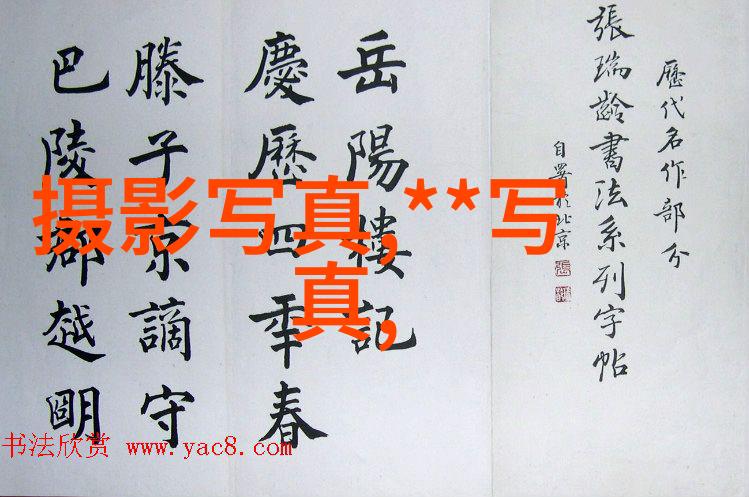 歷代名作部分
張瑞齡書法系列字帖
自署於北京
岳陽樓記
慶歷四年春
滕子京謫守
巴陵郡越明
摄影写真,**写
真,
书法欣赏 www.yac8.com